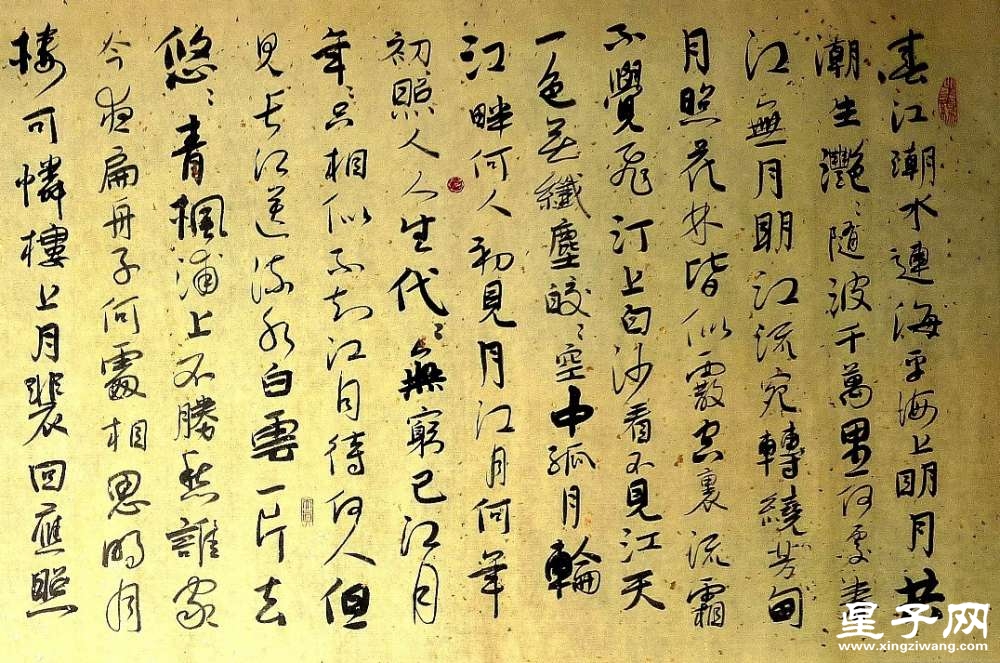 春江潮水連海平海上明月共
潮生灧〻隨波千萬里何處春
江無月明江流宛轉繞芳甸
月照花林皆似霰空裏流霜
不覺飛汀上白沙看不見江天
一色無纖塵皎〻空中孤月輪
江畔何人初見月江月何年
初照人人生代〻無窮已江月
年〻只相似不知江月待何人但
見長江送流水白雲一片去
悠〻青楓浦上不勝愁誰家
今夜扁舟子何處相思明月
樓可憐樓上月裴回應照
星子网
www.xingziwang.com